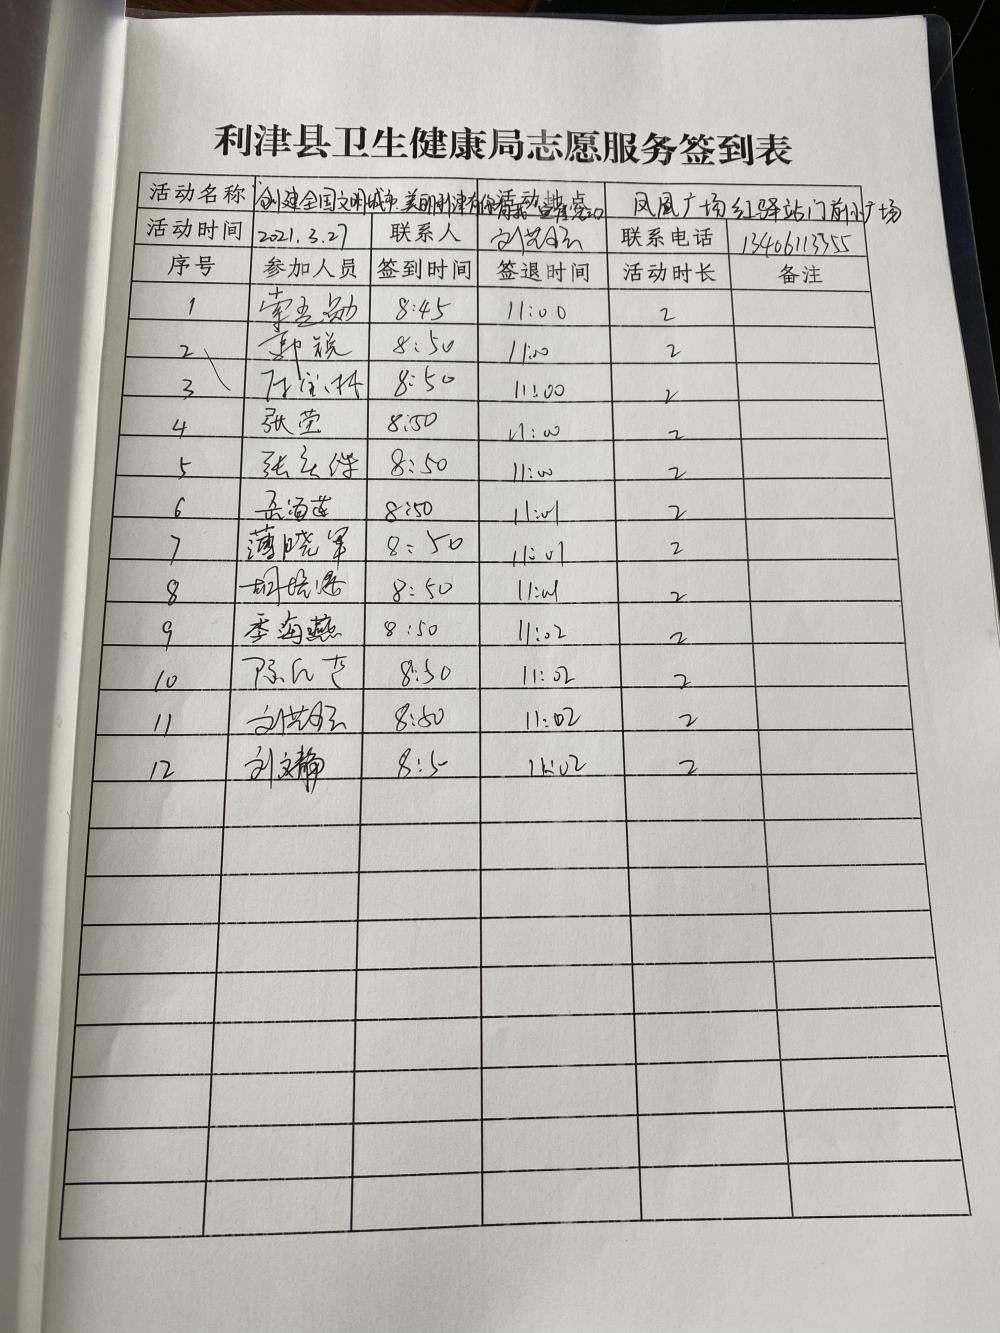 利津县卫生健康局志愿服务签到表
活动名称 创建全国文明城市 美丽利津有你有我 活动地点 凤凰广场红驿站门前小广场
活动时间 2021.3.27 联系人 刘芸 联系电话 13406113355
序号 参加人员 签到时间 签退时间 活动时长 备注
1 8:45 11:00 2
2 郭锐 8:50 11:00 2
3 8:50 11:00 2
4 张莹 8:50 11:00 2
5 张 8:50 11:00 2
6 岳海莲 8:50 11:01 2
7 薄晓军 8:50 11:01 2
8 胡 8:50 11:01 2
9 李海燕 8:50 11:02 2
10 陈 8:50 11:02 2
11 刘 8:50 11:02 2
12 刘文静 8:5 11:02 2